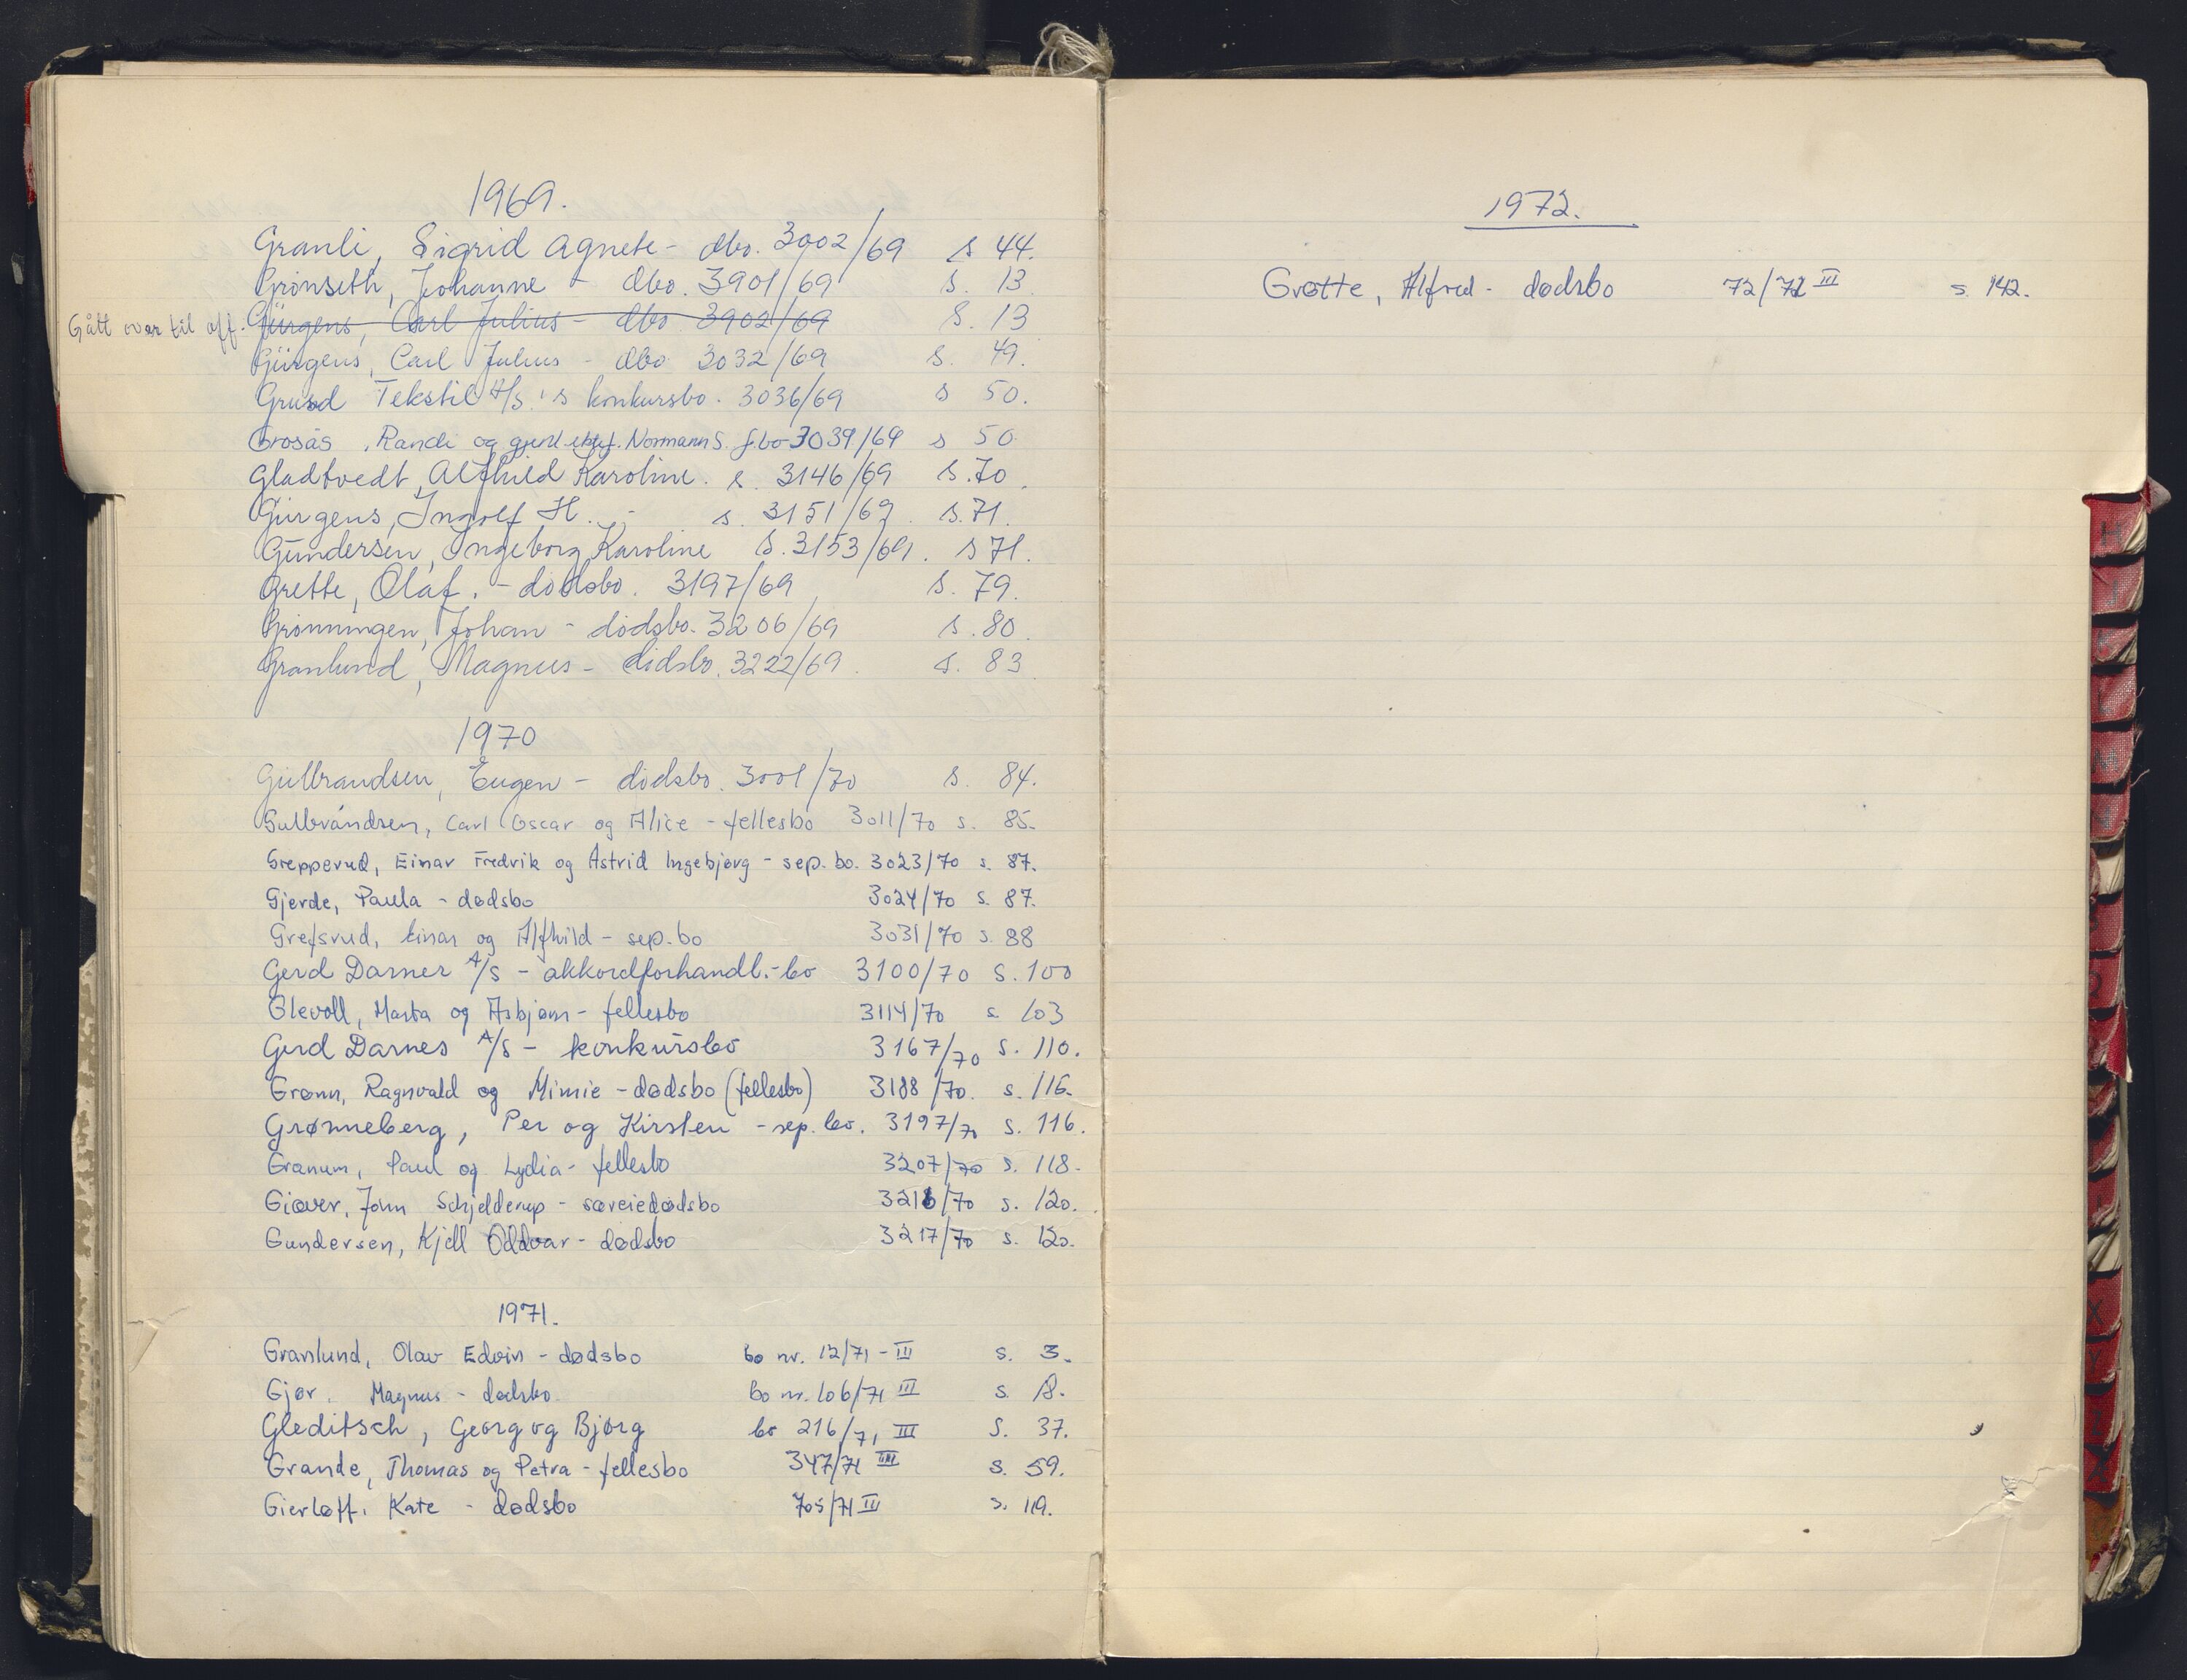 1969.
Granli, Sigrid Agnete - dbo. 3002/69 s 44.
Grønseth, Johanne - dbo. 3901/69 s. 13
Gått over til off. Gürgens, Carl Julius - dbo 3902/69 S. 13
Gürgens, Carl Julius - dbo 3032/69 s. 49.
Grund Tekstil A/S's konkursbo. 3036/69 s 50.
Grosås, Randi og gjenl. ektef. Normann S. f.bo 3039/69 s 50
Gladtvedt, Alfhild Karoline. s. 3146/69 s. 70.
Gürgens, Ingolf H. - s. 3151/69. s. 71.
Gundersen, Ingeborg Karoline s. 3153/69. s 71.
Grette, Olaf. - dødsbo. 3197/69 s. 79.
Grønningen, Johan - dødsbo. 3206/69 s. 80.
Granlund, Magnus - dødsbo. 3222/69. s. 83
1970
Gulbrandsen, Eugen - dødsbo. 3001/70 s. 84.
Gulbrandsen, Carl Oscar og Alice - fellesbo 3011/70 s. 85.
Grepperud, Einar Fredrik og Astrid Ingebjørg - sep. bo. 3023/70 s. 87.
Gjerde, Paula - dødsbo 3024/70 s. 87.
Grefsrud, Einar og Alfhild - sep. bo 3031/70 s. 88
Gerd Darner A/S - akkordforhandl.-bo 3100/70 S. 100
Glevoll, Marta og Asbjørn - fellesbo 3114/70 s. 103
Gerd Darnes A/S - konkursbo 3167/70 s. 110.
Grønn, Ragnvald og Mimie - dødsbo (fellesbo) 3188/70. s. 116.
Grønneberg, Per og Kirsten - sep. bo. 3197/70 s. 116.
Granum, Paul og Lydia - fellesbo 3207/70 s. 118.
Giæver, John Schjelderup - særeiedødsbo 3216/70 s. 120.
Gundersen, Kjell Oddvar - dødsbo 3217/70 s. 120.
1971.
Granlund, Olav Edvin - dødsbo bo nr. 12/71 - III s. 3.
Gjør, Magnus - dødsbo. bo nr. 106/71 III s. 18.
Gleditsch, Georg og Bjørg bo 216/71 III S. 37.
Grande, Thomas og Petra - fellesbo 347/71 III s. 59.
Gierløff, Kate - dødsbo 705/71 III s. 119.
1972.
Grøtte, Alfred - dødsbo 72/72 III s. 142.
H
I
L
X
Y